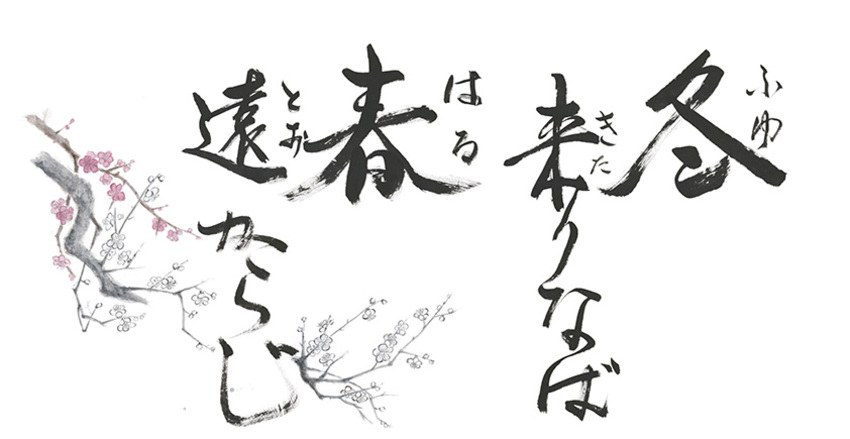 冬
ふゆ
来りなば
きた
春
はる
遠からじ
とお